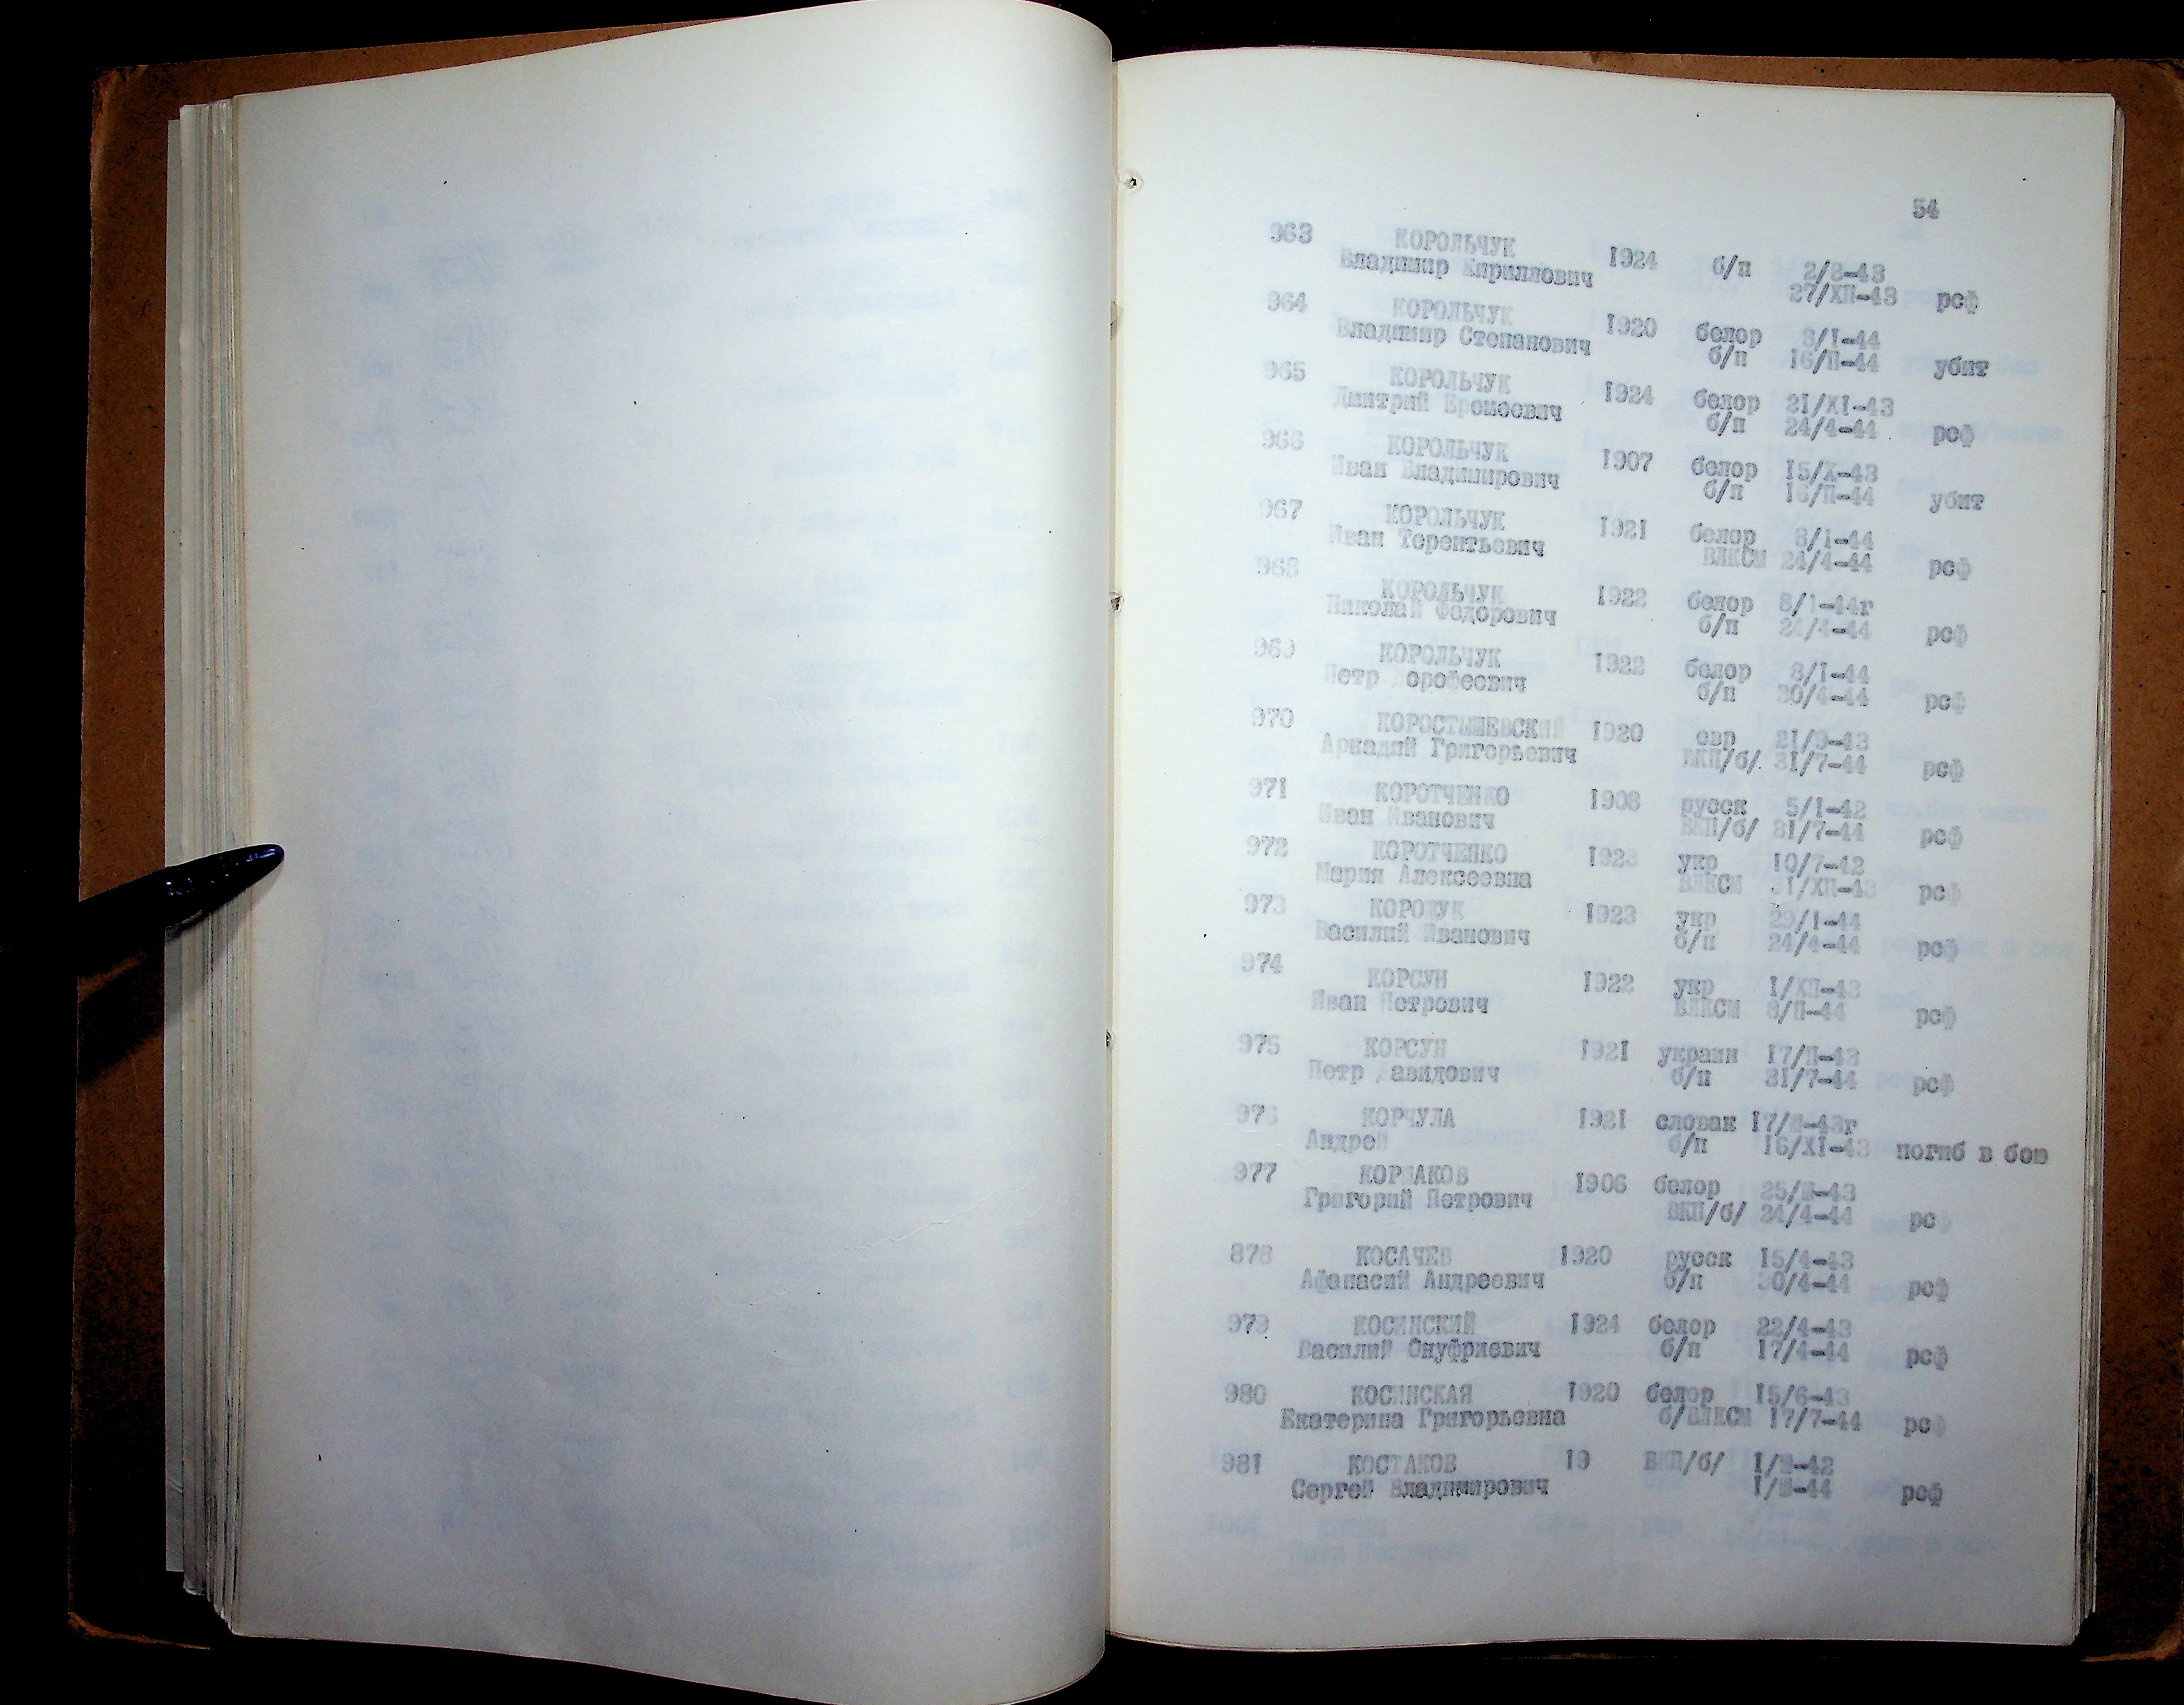 54
963 КОРОЛЬЧУК 1924 б/п 2/8-43
Владимир Кириллович 27/ХП-43 рсф
964 КОРОЛЬЧУК 1920 белор 8/I-44
Владимир Степанович б/п 16/П-44 убит
965 КОРОЛЬЧУК 1924 белор 2I/XI-43
Дмитрий Еремеевич б/п 24/4-44 рсф
966 КОРОЛЬЧУК 1907 белор I5/X-43
Иван Владимирович б/п 16/П-44 убит
967 КОРОЛЬЧУК 1921 белор 8/I-44
Иван Терентьевич ВЛКСМ 24/4-44 рсф
968 КОРОЛЬЧУК 1922 белор 8/I-44г
Николай Федорович б/п 24/4-44 рсф
969 КОРОЛЬЧУК 1922 белор 8/I-44
Петр Дорофеевич б/п 30/4-44 рсф
970 КОРОСТЫШЕВСКИЙ 1920 евр 2I/9-43
Аркадий Григорьевич ВКП/б/. 3I/7-44 рсф
971 КОРОТЧЕНКО 1908 русск 5/I-42
Иван Иванович ВКП/б/ 3I/7-44 рсф
972 КОРОТЧЕНКО 1923 укр I0/7-42
Мария Алексеевна ВЛКСМ 3I/ХП-43 рсф
973 КОРОЧУК 1923 укр 29/I-44
Василий Иванович б/п 24/4-44 рсф
974 КОРСУН 1922 укр I/ХП-43
Иван Петрович ВЛКСМ 8/П-44 рсф
975 КОРСУН 1921 украин I7/П-43
Петр Давидович б/п 3I/7-44 рсф
976 КОРЧУЛА 1921 словак I7/Ш-43г
Андрей б/п I6/XI-43 погиб в бою
977 КОРШАКОВ 1906 белор 25/Ш-43
Григорий Петрович ВКП/б/ 24/4-44 рсф
878 КОСАЧЕВ 1920 русск I5/4-43
Афанасий Андреевич б/п 30/4-44 рсф
979 КОСИНСКИЙ 1924 белор 22/4-43
Василий Онуфриевич б/п I7/4-44 рсф
980 КОСИНСКАЯ 1920 белор I5/6-43
Екатерина Григорьевна б/ВЛКСМ I7/7-44 рсф
981 КОСТАКОВ 19 ВКП/б/ I/Ш-42
Сергей Владимирович I/Ш-44 рсф